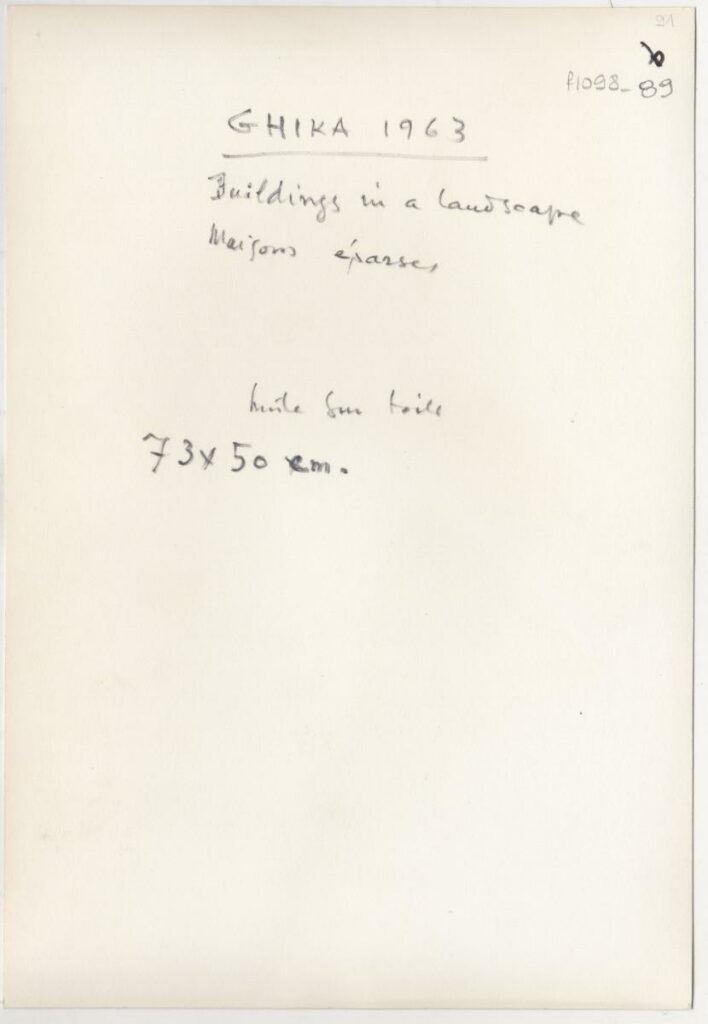 21
f1098-89
GHIKA 1963
Buildings in a landscape
Maisons éparses
huile sur toile
73x50 cm.